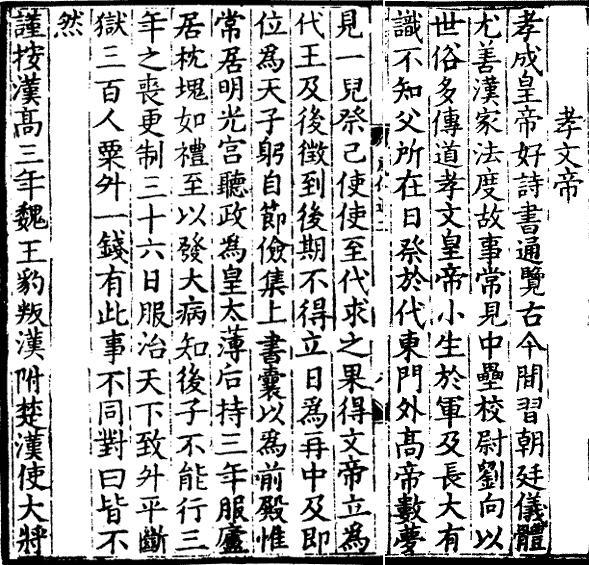 孝文帝
孝成皇帝好詩書通覽古今間習朝廷儀體
尤善漢家法度故事常見中壘校尉劉向以
世俗多傳道孝文皇帝小生於軍及長大有
識不知父所在日祭於代東門外高帝數夢
見一兒祭己使使至代求之果得文帝立為
代王及後徵到後期不得立日為再中及即
位為天子躬自節儉集上書囊以為前殿惟
常居明光宮聽政為皇太薄后持三年服廬
居枕塊如禮至以發大病知後子不能行三
年之喪更制三十六日服治天下致升平斷
獄三百人粟升一錢有此事不同對曰皆不
然
謹按漢高三年魏王豹叛漢附楚漢使大將